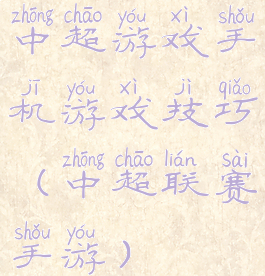 zhōng chāo yóu xì shǒu
中超游戏手
jī yóu xì jì qiǎo
机游戏技巧
zhōng chāo lián sài
(中超联赛
shǒu yóu
手游)